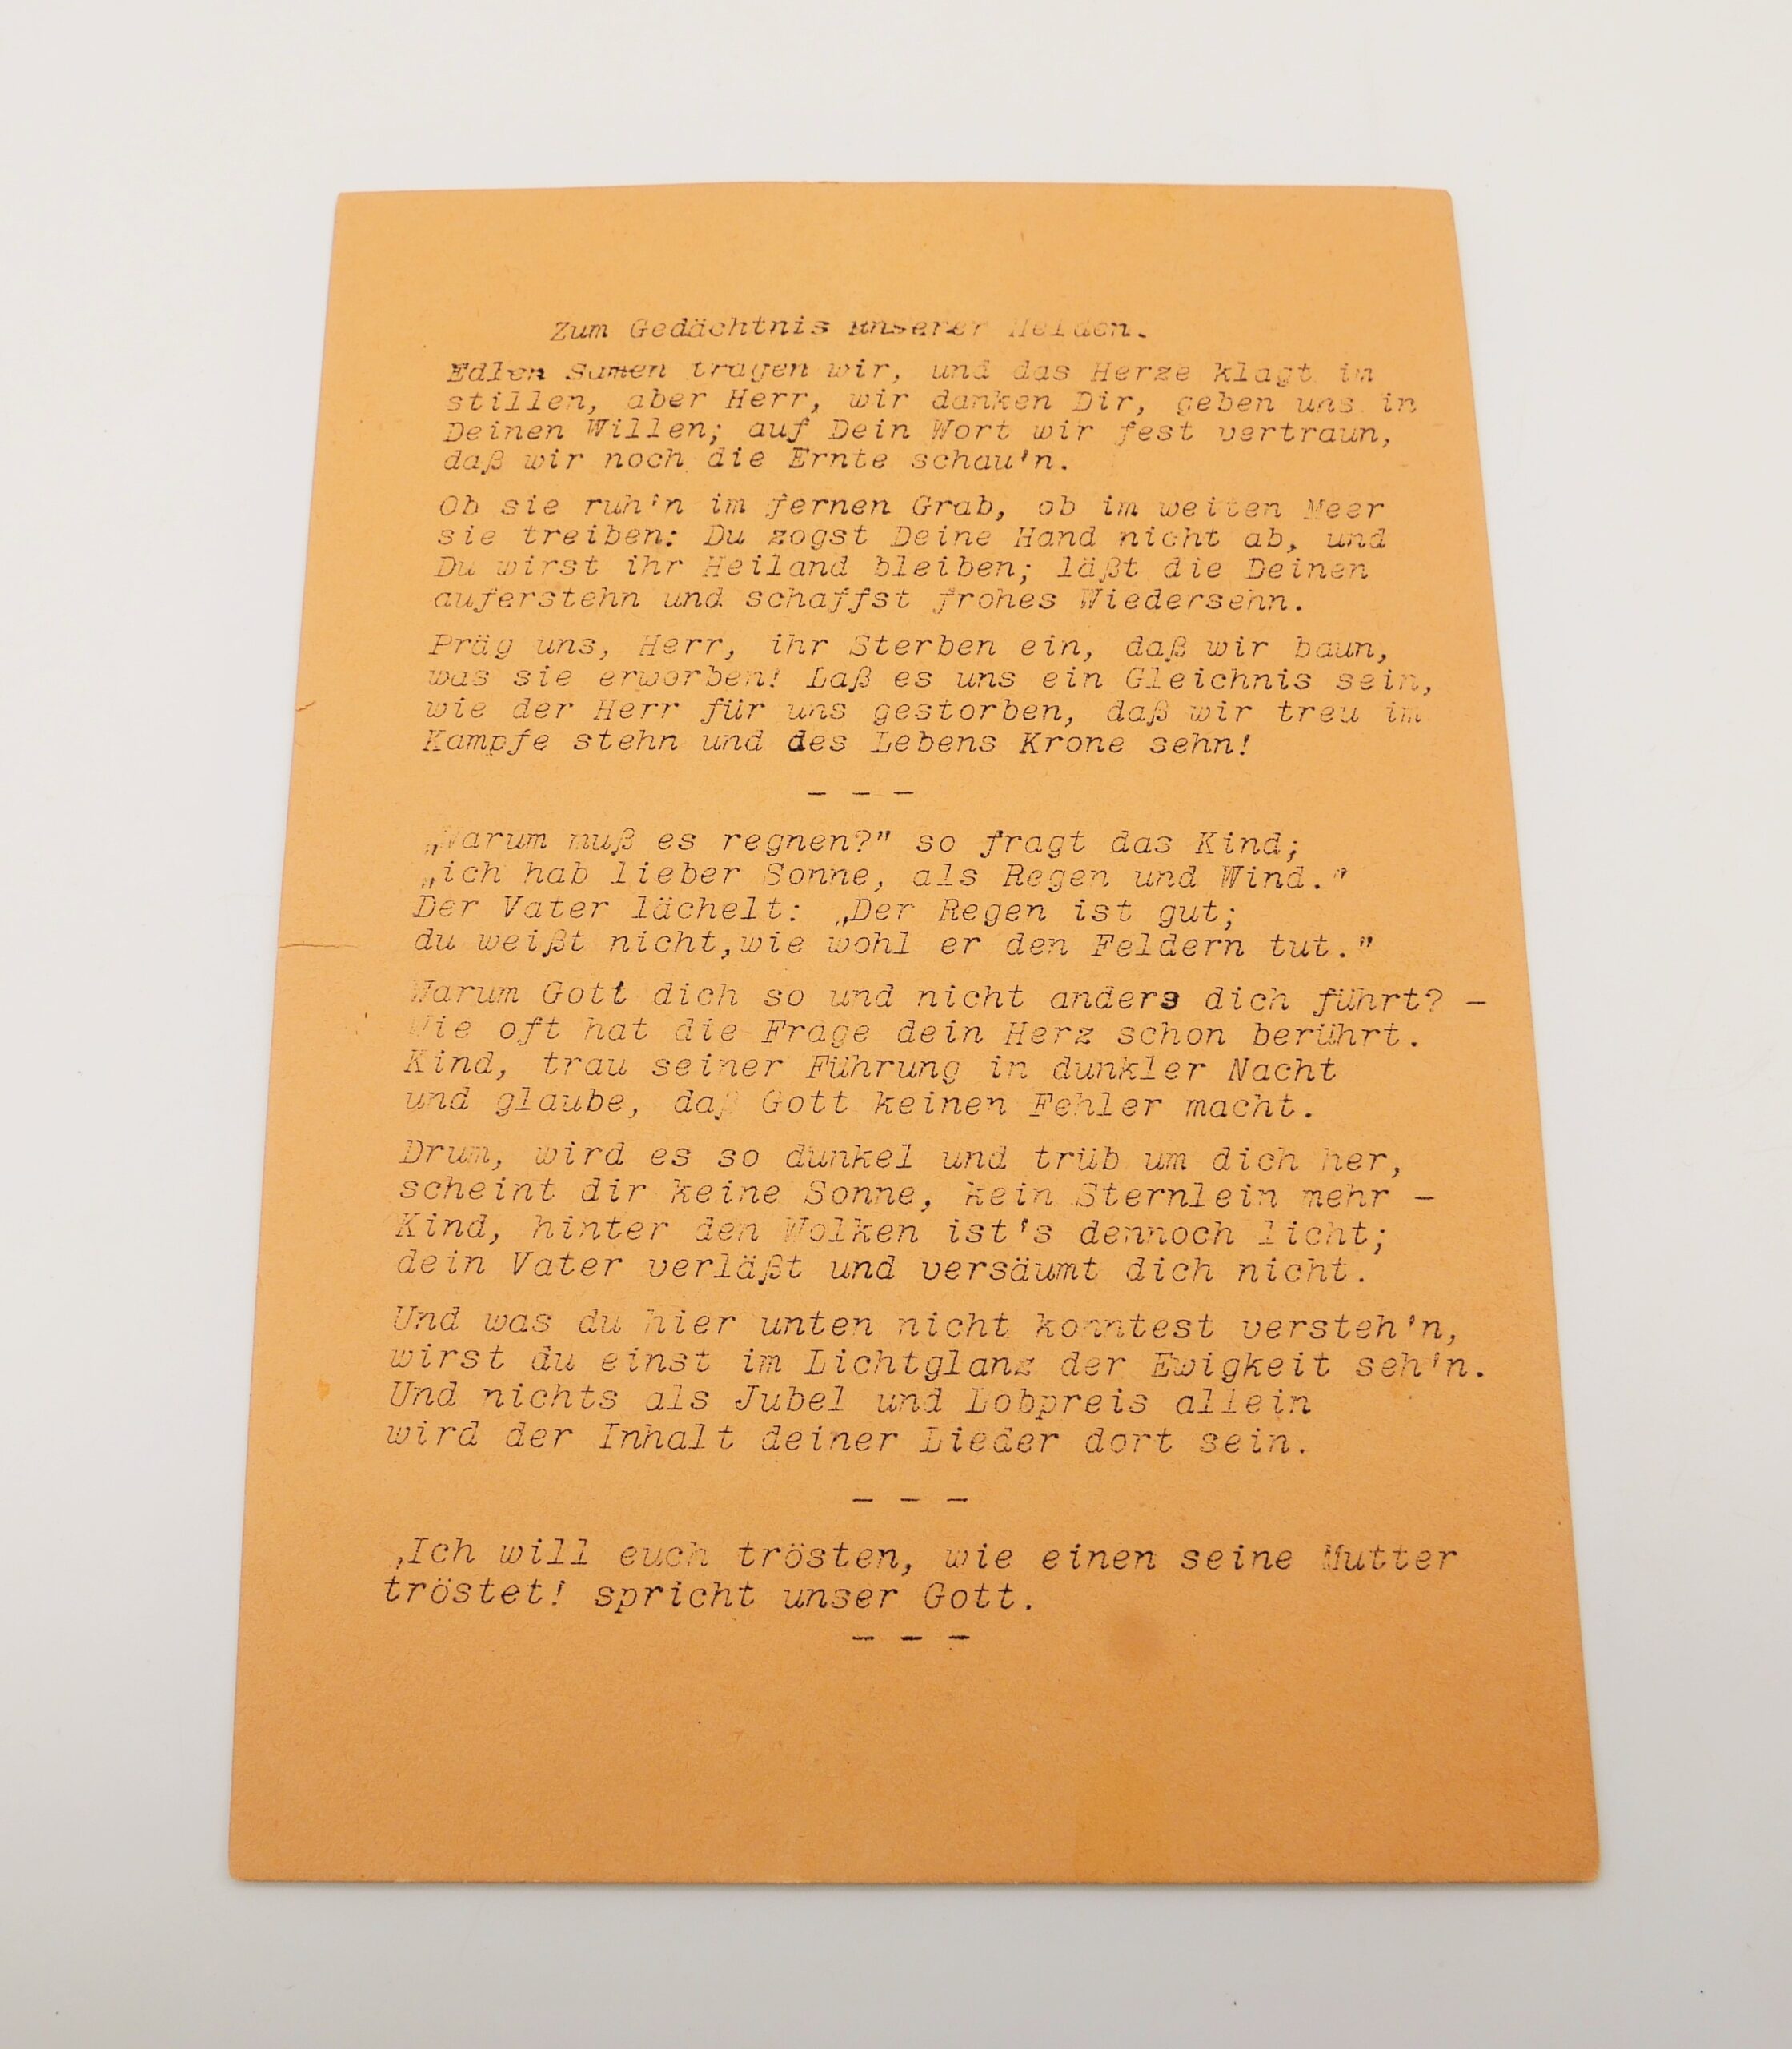 Zum Gedächtnis unserer Helden.
Edlen Samen tragen wir, und das Herze klagt im
stillen, aber Herr, wir danken Dir, geben uns in
Deinen Willen; auf Dein Wort wir fest vertraun,
daß wir noch die Ernte schau'n.
Ob sie ruh'n im fernen Grab, ob im weiten Meer
sie treiben: Du zogst Deine Hand nicht ab, und
Du wirst ihr Heiland bleiben; läßt die Deinen
auferstehn und schaffst frohes Wiedersehn.
Präg uns, Herr, ihr Sterben ein, daß wir baun,
was sie erworben! Laß es uns ein Gleichnis sein,
wie der Herr für uns gestorben, daß wir treu im
Kampfe stehn und des Lebens Krone sehn!
- - -
„Warum muß es regnen?" so fragt das Kind;
„ich hab lieber Sonne, als Regen und Wind."
Der Vater lächelt: „Der Regen ist gut;
du weißt nicht,wie wohl er den Feldern tut."
Warum Gott dich so und nicht anders dich führt? -
Wie oft hat die Frage dein Herz schon berührt.
Kind, trau seiner Führung in dunkler Nacht
und glaube, daß Gott keinen Fehler macht.
Drum, wird es so dunkel und trüb um dich her,
scheint dir keine Sonne, kein Sternlein mehr -
Kind, hinter den Wolken ist's dennoch licht;
dein Vater verläßt und versäumt dich nicht.
Und was du hier unten nicht konntest versteh'n,
wirst du einst im Lichtglanz der Ewigkeit seh'n.
Und nichts als Jubel und Lobpreis allein
wird der Inhalt deiner Lieder dort sein.
- - -
,Ich will euch trösten, wie einen seine Mutter
tröstet! spricht unser Gott.
- - -